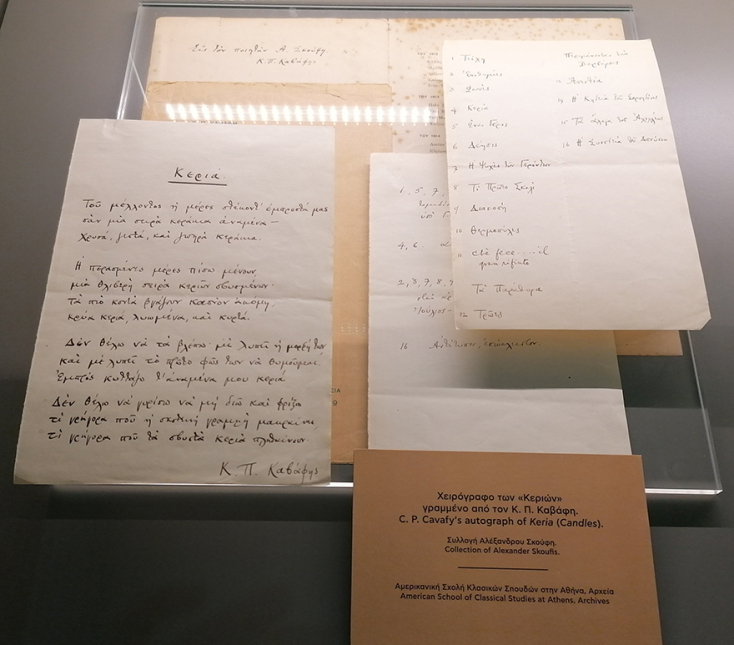 Εις τον ποιητήν Α. Σκούφη.
Κ. Π. Καβάφης
Κεριά.
Τοῦ μέλλοντος ἡ μέρες στέκοντ' ἐμπροστά μας
σὰν μιὰ σειρὰ κεράκια ἀναμένα —
χρυσά, ζεστά, καὶ ζωηρὰ κεράκια.
Ἡ περασμένες μέρες πίσω μένουν,
μιὰ θλιβερὴ σειρὰ κεριῶν σβυσμένων·
Τὰ πιὸ κοντὰ βγάζουν καπνὸν ἀκόμη,
κρύα κεριά, λυωμένα, καὶ κυρτά.
Δὲν θέλω νὰ τὰ βλέπω· μὲ λυπεῖ ἡ μορφή των
καὶ μὲ λυπεῖ τὸ πρῶτο φῶς των νὰ θυμοῦμαι.
Ἐμπρὸς κυττάζω τ' ἀναμένα μου κεριά.
Δὲν θέλω νὰ γυρίσω νὰ μὴ διῶ καὶ φρίξω
τί γρήγορα ποῦ ἡ σκοτεινὴ γραμμὴ μακραίνει
τί γρήγορα ποῦ τὰ σβυστὰ κεριὰ πληθαίνουν.
Κ. Π. Καβάφης
1 Τείχη
2 Ἐπιθυμίες
3 Φωνές
4 Κεριά
5 Ἕνας Γέρος
6 Δέησις
7 Ἡ Ψυχὲς τῶν Γερόντων
8 Τὸ Πρῶτο Σκαλί
9 Διακοπή
10 Θερμοπύλες
11 Che fece .... il
gran rifiuto
Τὰ Παράθυρα
12 Τρῶες
Περιμένοντας τοὺς
Βαρβάρους
Ἀπιστία
Ἡ Κηδεία τοῦ Σαρπηδόνος
15 Τὰ ἄλογα τοῦ Ἀχιλλέως
16 Ἡ Συνοδεία τοῦ Διονύσου
1, 5, 7,
4, 6
2, 3, 7, 8, 9
16
Χειρόγραφο των «Κεριών»
γραμμένο από τον Κ. Π. Καβάφη.
C. P. Cavafy's autograph of Keria (Candles).
Συλλογή Αλέξανδρου Σκούφη.
Collection of Alexander Skoufis.
Αμερικανική Σχολή Κλασικών Σπουδών στην Αθήνα, Αρχεία
American School of Classical Studies at Athens, Archives